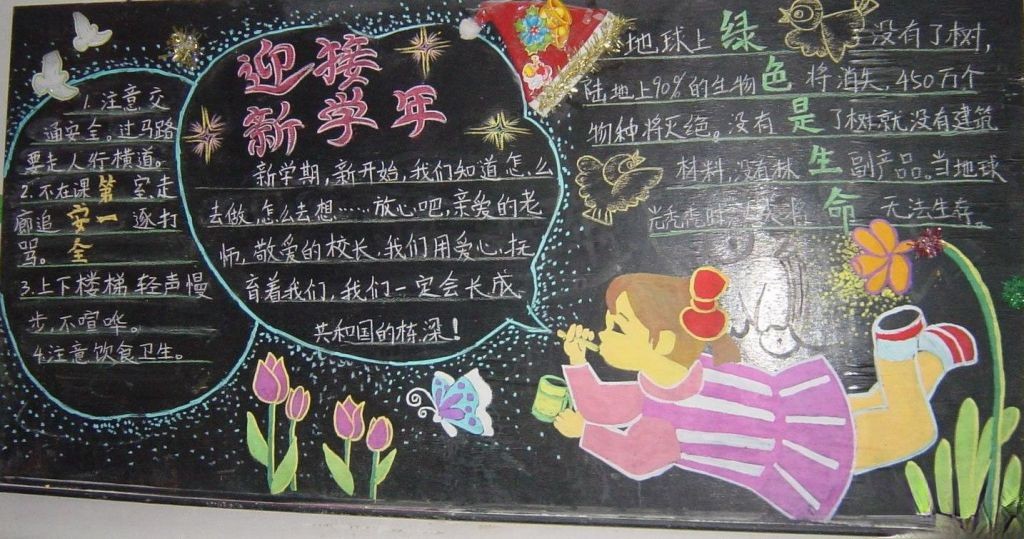 1.注意交
通安全。过马路
要走人行横道。
2.不在课室走
廊追逐打
骂。
3.上下楼梯轻声慢
步,不喧哗。
4.注意饮食卫生。
安全
第一
迎接
新学年
新学期,新开始,我们知道怎么
去做,怎么去想……放心吧,亲爱的老
师,敬爱的校长,我们用爱心,抚
育着我们,我们一定会长成
共和国的栋深!
绿色是生命
地,球上没有了树,
陆地上90%的生物将消失,450万个
物种将灭绝。没有了树,就没有建筑
材料,没有林副产品。当地球
光秃秃时无法生存。